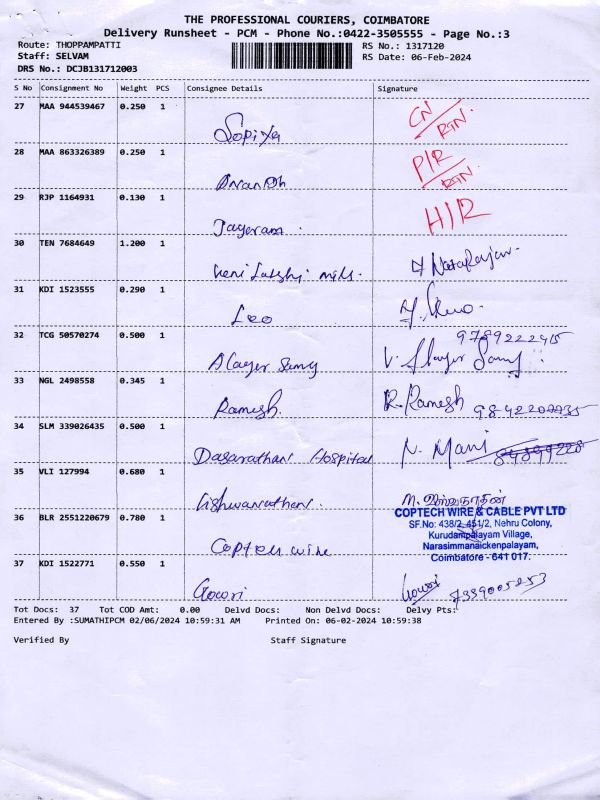 THE PROFESSIONAL COURIERS, COIMBATORE
Delivery Runsheet - PCM - Phone No.:0422-3505555 - Page No.:3
Route: THOPPAMPATTI RS No.: 1317120
Staff: SELVAM RS Date: 06-Feb-2024
DRS No.: DCJB131712003
S No Consignment No Weight PCS Consignee Details Signature
27 MAA 944539467 0.250 1 CN
Sopiya RTN
28 MAA 863326389 0.250 1 P/R
Ananth RTN
29 RJP 1164931 0.130 1 H/R
Jayaram
30 TEN 7684649 1.200 1
mills. Natarajan
31 KDI 1523555 0.290 1
Leo
32 TCG 50570274 0.500 1 9789222415
Alayer Samy V.
33 NGL 2498558 0.345 1
Ramesh. R. Ramesh
34 SLM 339026435 0.500 1
Dasarathan Hospital N. Mani
35 VLI 127994 0.680 1
Vishwanathan. M.
36 BLR 2551220679 0.780 1 COPTECH WIRE & CABLE PVT LTD
SF.No: 438/2, 451/2, Nehru Colony,
Kurudampalayam Village,
Coptech wire Narasimmanaickenpalayam,
Coimbatore - 641 017.
37 KDI 1522771 0.550 1
Gowri Gowri
Tot Docs: 37 Tot COD Amt: 0.00 Delvd Docs: Non Delvd Docs: Delvy Pts:
Entered By :SUMATHIPCM 02/06/2024 10:59:31 AM Printed On: 06-02-2024 10:59:38
Verified By Staff Signature